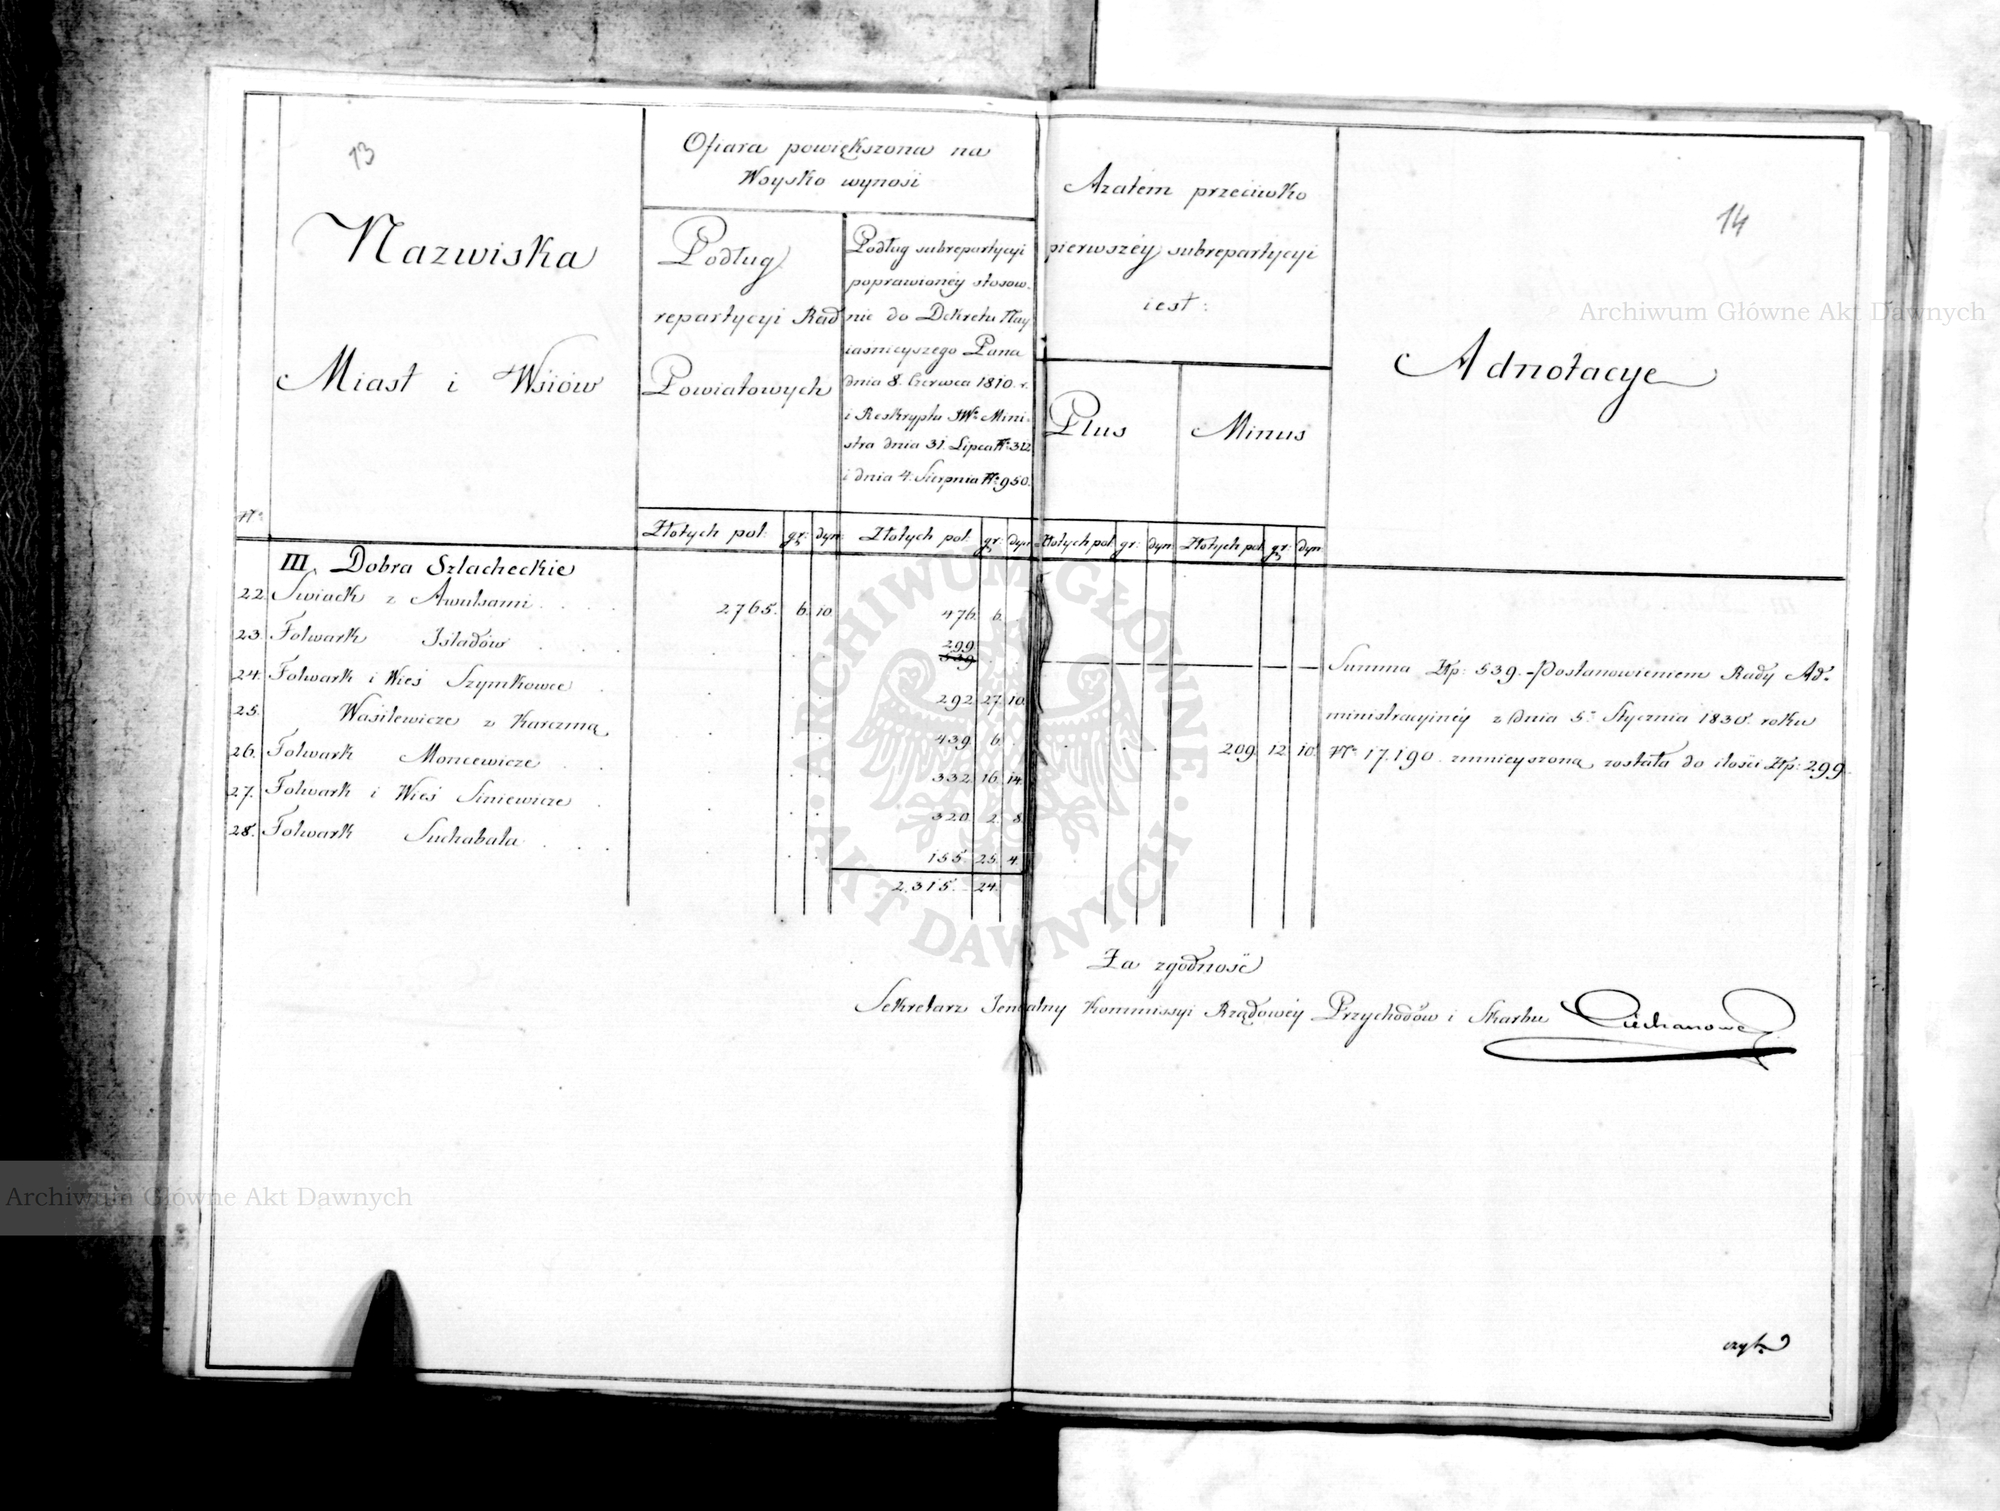 13
Ofiara powiększona na
Woysko wynosi
Nazwiska
Miast i Wsiów
Podług
repartycyi Rad
Powiatowych
Podług subrepartycyi
poprawionéy stosow-
nie do Dekretu Nay
iasnieyszego Pana
dnia 8. Czerwca 1810. r.
i Reskryptu JW. Mini-
stra dnia 31. Lipca No 312
i dnia 4. Sierpnia No 950.
Azatém przeciwko
pierwszéy subrepartycyi
iest:
Plus
Minus
14
Adnotacye
No
Złotych pol: gr: dyn: Złotych pol: gr: dyn: Złotych pol: gr: dyn: Złotych pol: gr: dyn:
III. Dobra Szlacheckie
22. Swiack z Awulsami . . . . 2765. 6. 10. 476. 6. .
23. Folwark Jsladów . . . . 299
539
24. Folwark i Wieś Szymkowce . 292. 27. 10.
25. Wasilewicze z Karczmą 439. 6. . 209. 12. 10.
26. Folwark Moncewicze . . 332. 16. 14.
27. Folwark i Wieś Siniewicze . 320. 2. 8.
28. Folwark Suchabała . . . 155. 25. 4.
2.315. 24.
Summa Złp: 539. - Postanowieniem Rady Ad-
ministracyinéy z dnia 5. Stycznia 1830. roku
No 17.190. zmnieyszoną została do ilości Złp: 299.
Za zgodność
Sekretarz Jeneralny Kommissyi Rządowéy Przychodów i Skarbu
czyt.
Archiwum Główne Akt Dawnych
Archiwum Główne Akt Dawnych
ARCHIWUM GŁÓWNE · AKT DAWNYCH ·